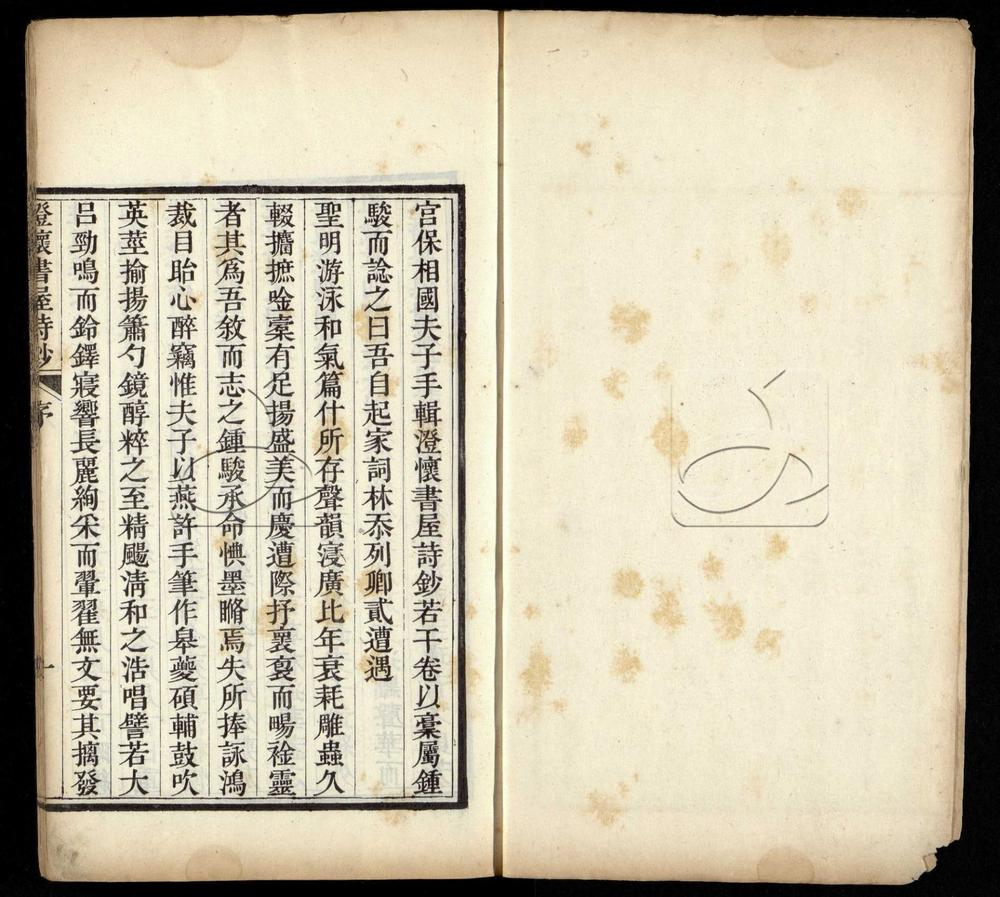 宫保相國夫子手輯澄懷書屋詩鈔若干卷以稾屬鍾
駿而諗之曰吾自起家詞林忝列卿貳遭遇
聖明游泳和氣篇什所存聲韻寖廣比年衰耗雕蟲久
輟擔摭唫稾有足揚盛美而慶遭際抒襄裒而暘襘靈
者其爲吾敘而志之鍾駿承命惧墨瞻焉失所捧詠鴻
裁目眙心醉竊惟夫子以燕許手筆作皋夔碩輔鼓吹
英莖揄揚簫勺鏡醇粹之至精颺淸和之浩唱譬若大
呂勁鳴而鈴鐸寑響長麗絢采而翬翟無文要其摛發
澄懷書屋詩鈔 序 一